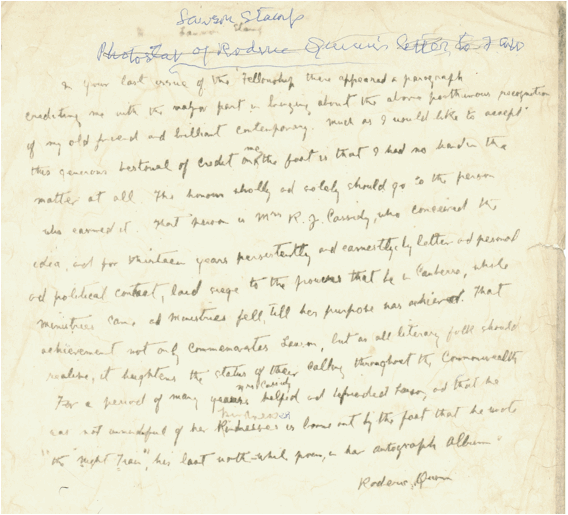 Lawson Stamp
Lawson Stamp
Photostat of Roderic Quinn's letter to
In your last issue of the Fellowship there appeared a paragraph
crediting me with the major part in bringing about the above posthumous recognition
of my old friend and brilliant contemporary. Much as I would like to accept
this generous bestowal of credit on me the fact is that I had no hand in the
matter at all. The honour wholly and solely should go to the person
who earned it. That person is Mrs R. J. Cassidy, who conceived the
idea, and for thirteen years persistently and earnestly, by letter and personal
and political contact, laid siege to the powers that be in Canberra, while
ministries came and ministries fell, till her purpose was achieved. That
achievement not only commemorates Lawson, but as all literary folk should
realise, it heightens the status of their calling throughout the Commonwealth
Mrs Cassidy
For a period of many years helped and befriended Lawson, and that he
kindnesses
was not unmindful of her kindnesses is borne out by the fact that he wrote
"The Night Train", his last worth-while poem, in her autograph album.
Roderic Quinn